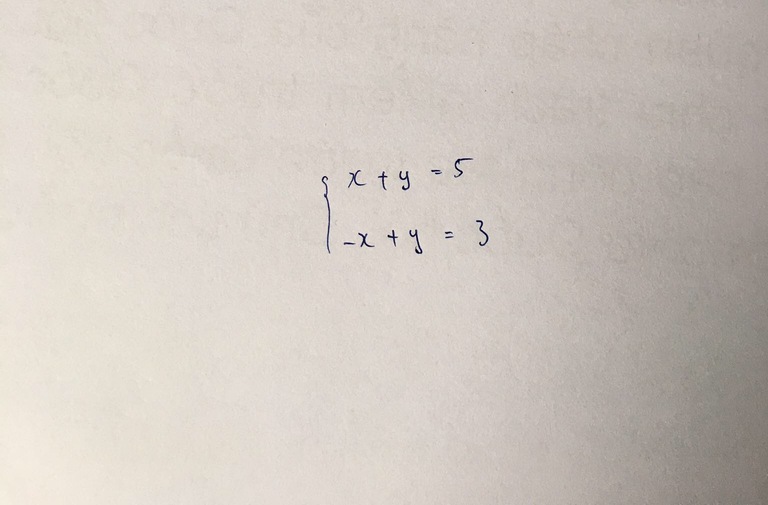 x + y = 5
-x + y = 3